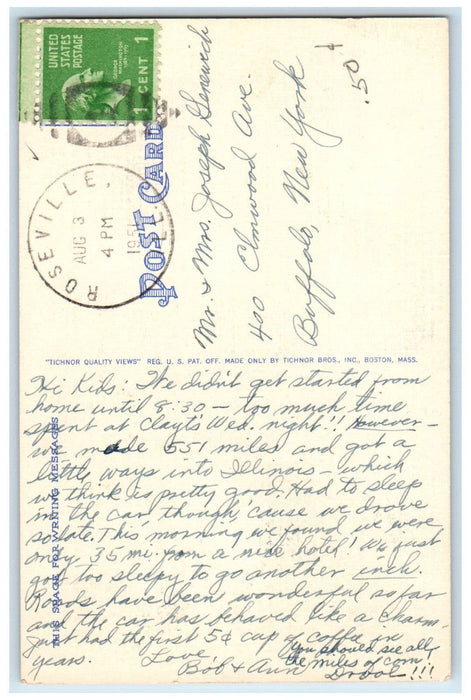 UNITED
STATES
POSTAGE
GEORGE
WASHINGTON
1 CENT 1
ROSEVILLE, ILL.
AUG 3
4 PM
195
POST CARD
.50
Mr. & Mrs. Joseph
400 Elmwood Ave.
Buffalo, New York
"TICHNOR QUALITY VIEWS" REG. U. S. PAT. OFF. MADE ONLY BY TICHNOR BROS., INC., BOSTON, MASS.
THIS SPACE FOR WRITING MESSAGES
Hi Kids: We didn't get started from
home until 8:30 – too much time
spent at Clayt's Wed. night!! However –
we made 551 miles and got a
little ways into Illinois – which
we think is pretty good. Had to sleep
in the car, though, 'cause we drove
so late. This morning we found we were
only 35 mi. from a nice hotel! We just
got too sleepy to go another inch.
Roads have been wonderful so far
and the car has behaved like a charm.
Just had the first 5¢ cup of coffee in
years. Love,
Bob & Ann
You should see all
the miles of corn
Drool!!!